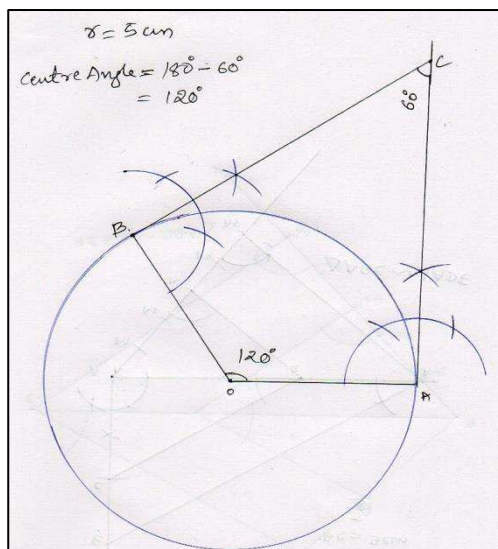 r = 5 cm
Centre Angle = 180° - 60°
= 120°
C
60°
B
120°
O
A